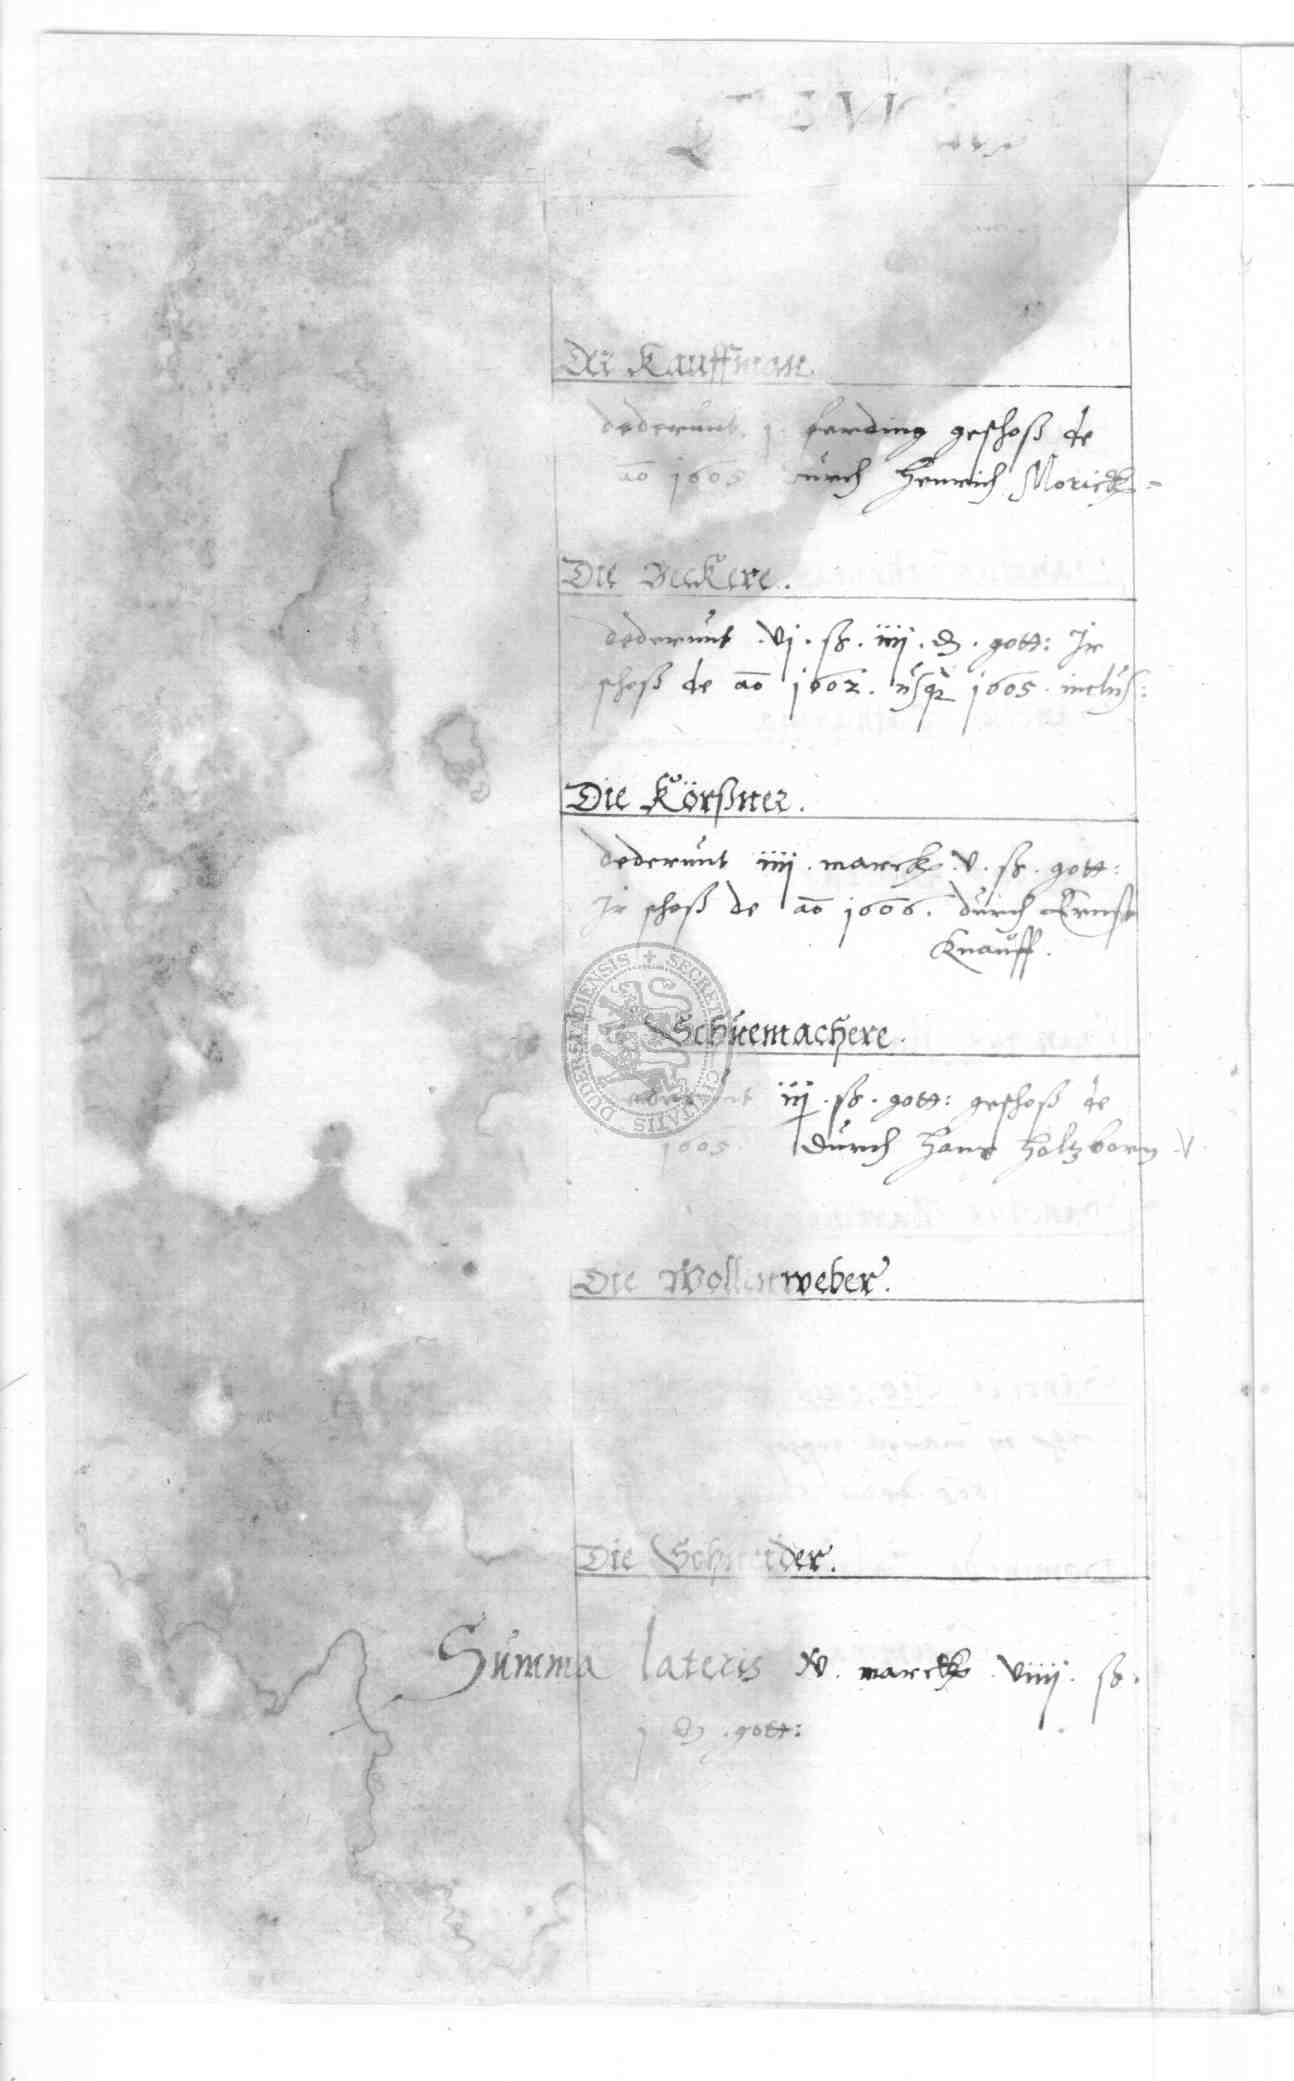 Die Kauffman.
dederunt j ferding geschoß de
ao 1605 durch Henrich Morick
Die Beckere.
dederunt .vj. ß. iiij. d. gott: Ir
schoß de ao 1602. usq 1605. inclus:
Die Körßner.
dederunt iiij. marck. v. ß. gott:
Ir schoß de ao 1606. durch Ernst
Knauff.
Schuemachere.
dederunt iij. ß. gott: geschoß de
1605. durch Hans Holtzborn
Die Wollenweber.
Die Schneider.
Summa lateris marck viiij. ß.
j d. gott:
SECRET CIVITATIS DUDERSTADIENSIS